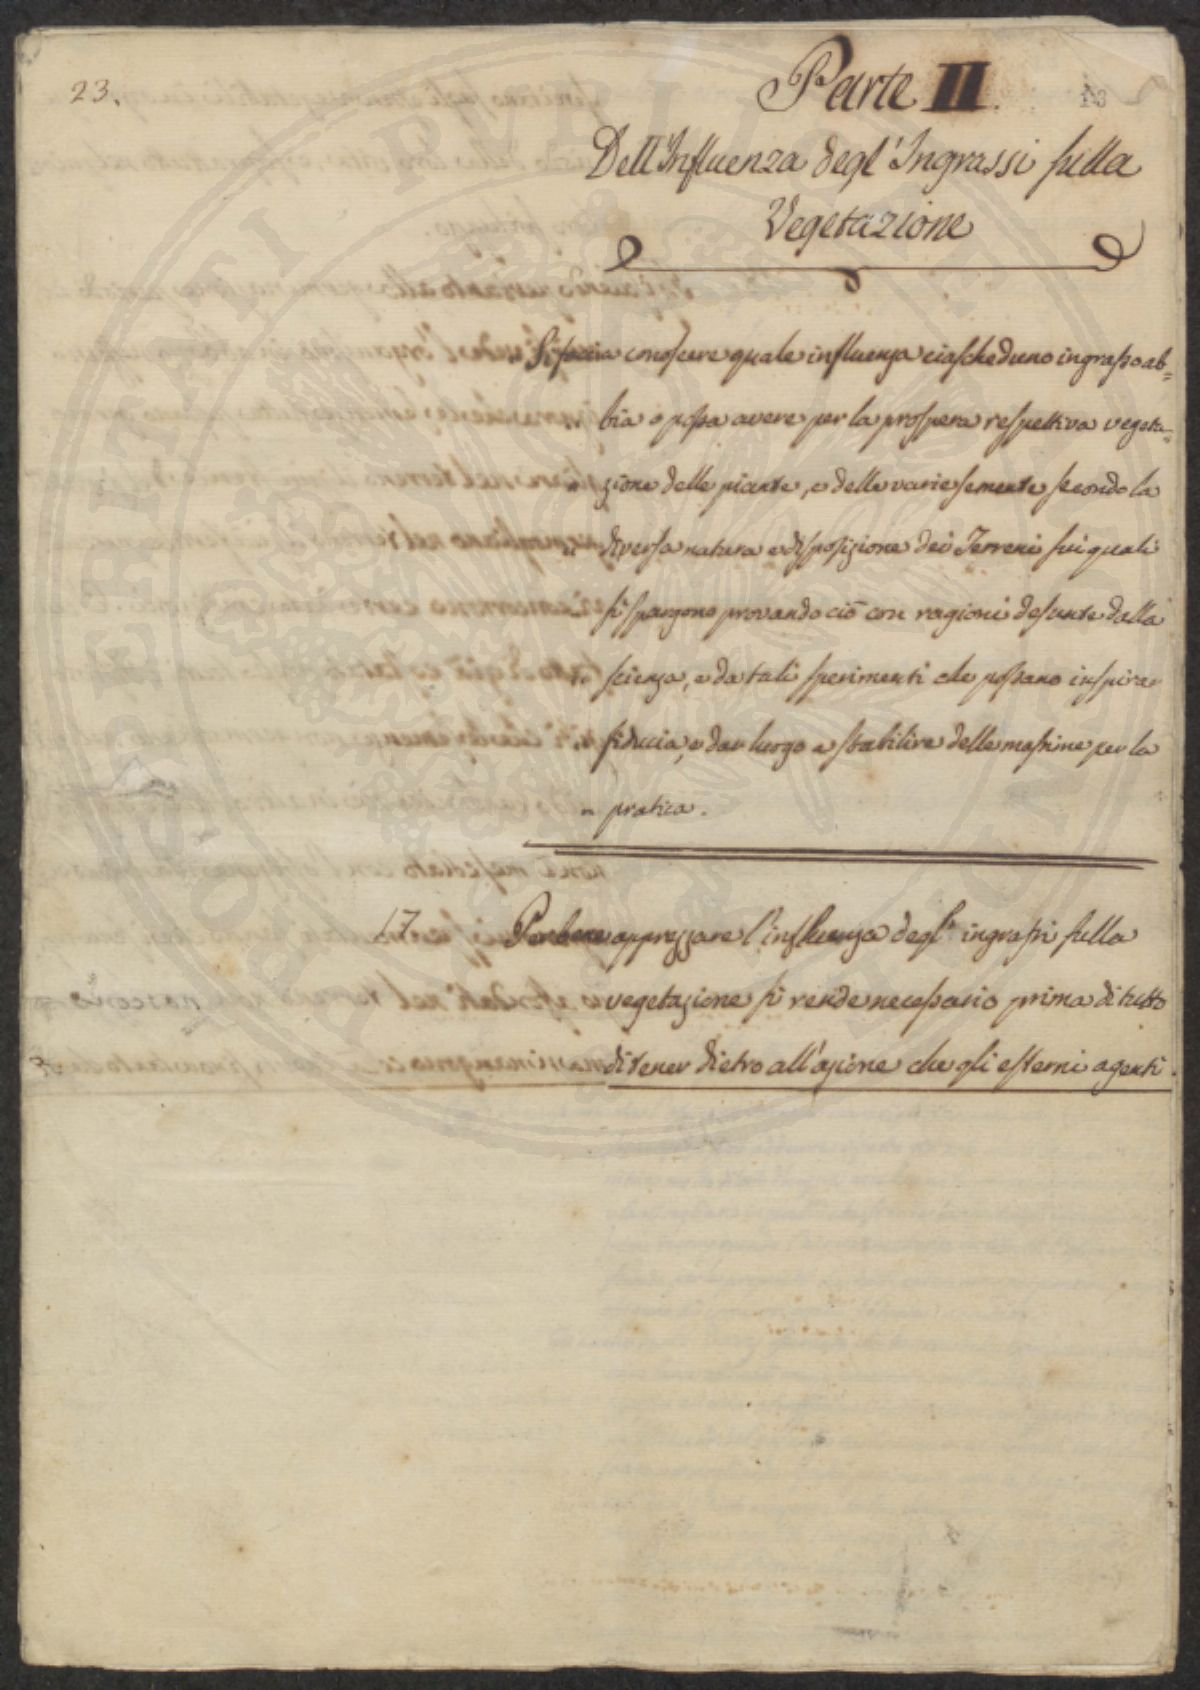 23.
Parte II.
Dell'Influenza degl'Ingrassi sulla
Vegetazione
„ Si faccia conoscere quale influenza ciascheduno ingrasso ab=
„ bia o possa avere per la prospera respettiva vegeta=
„ zione delle piante, e delle varie semente secondo la
„ diversa natura e disposizione dei Terreni sui quali
„ si spargono provando ciò con ragioni desunte dalla
„ scienza, e da tali sperimenti che possano inspirar
„ fiducia, e dar luogo a stabilire delle massime per la
„ pratica.
17. Per bene apprezzare l'influenza degl' ingrassi sulla
vegetazione si rende necessario prima di tutto
di tener dietro all'azione che gli esterni agenti